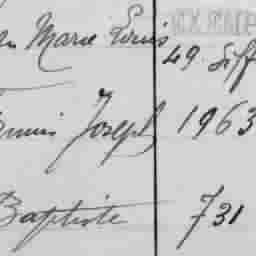 Marie Louis
49. Siff
Joseph 1963
Baptiste 731